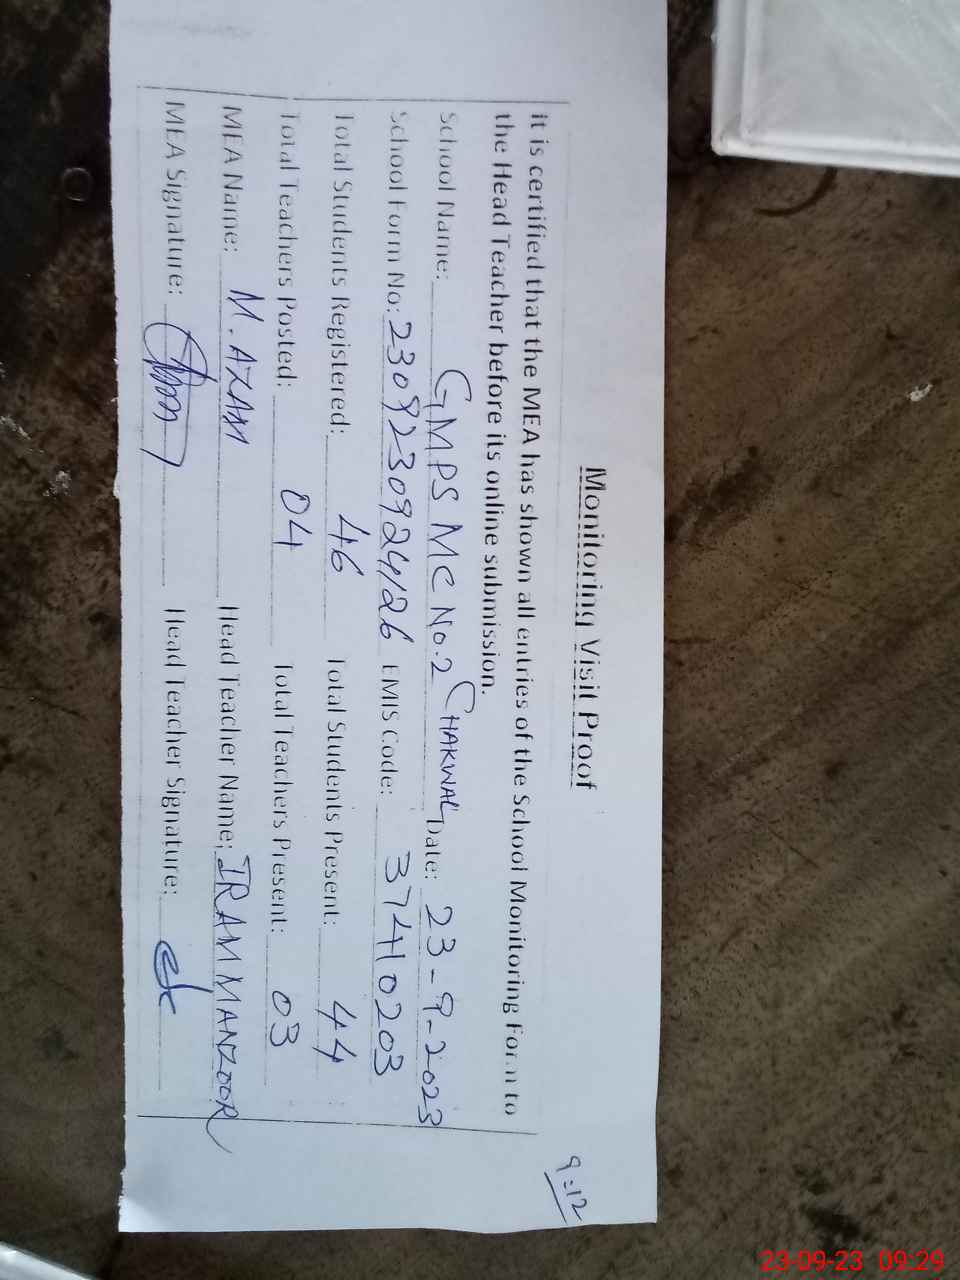 9:12
Monitoring Visit Proof
It is certified that the MEA has shown all entries of the School Monitoring Form to
the Head Teacher before its online submission.
School Name: GMPS MC No.2 CHAKWAL Date: 23-9-2023
School Form No: 230923092426 EMIS Code: 37410203
Total Students Registered: 46 Total Students Present: 44
Total Teachers Posted: 04 Total Teachers Present: 03
MEA Name: M. AZAM Head Teacher Name: IRAM MANZOOR
MEA Signature: Head Teacher Signature:
23-09-23 09:29